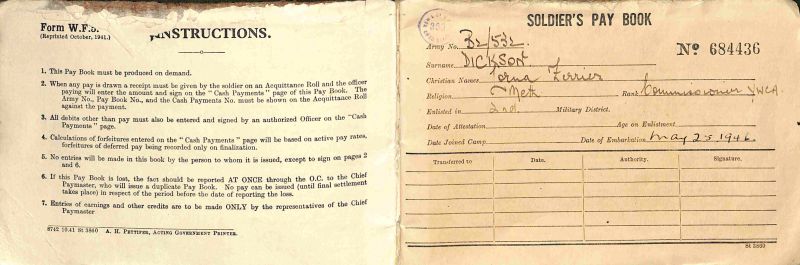 Form W.F.5.
(Reprinted October, 1941.)
INSTRUCTIONS.
1. This Pay Book must be produced on demand.
2. When any pay is drawn a receipt must be given by the soldier on an Acquittance Roll and the officer
paying will enter the amount and sign on the "Cash Payments" page of this Pay Book. The
Army No., Pay Book No., and the Cash Payments No. must be shown on the Acquittance Roll
against the payment.
3. All debits other than pay must also be entered and signed by an authorized Officer on the "Cash
Payments" page.
4. Calculations of forfeitures entered on the "Cash Payments" page will be based on active pay rates,
forfeitures of deferred pay being recorded only on finalization.
5. No entries will be made in this book by the person to whom it is issued, except to sign on pages 2
and 6.
6. If this Pay Book is lost, the fact should be reported AT ONCE through the O.C. to the Chief
Paymaster, who will issue a duplicate Pay Book. No pay can be issued (until final settlement
takes place) in respect of the period before the date of reporting the loss.
7. Entries of earnings and other credits are to be made ONLY by the representatives of the Chief
Paymaster
8742 10.41 St 3860 A. H. Pettifer, Acting Government Printer.
SOLDIER'S PAY BOOK
Army No. B2/532
No 684436
Surname DICKSON
Christian Names Lorna Ferrier
Religion Meth Rank Commissioner YWCA.
Enlisted in 2nd. Military District.
Date of Attestation Age on Enlistment
Date Joined Camp Date of Embarkation May 25 1946.
Transferred to Date. Authority. Signature.
St 3860